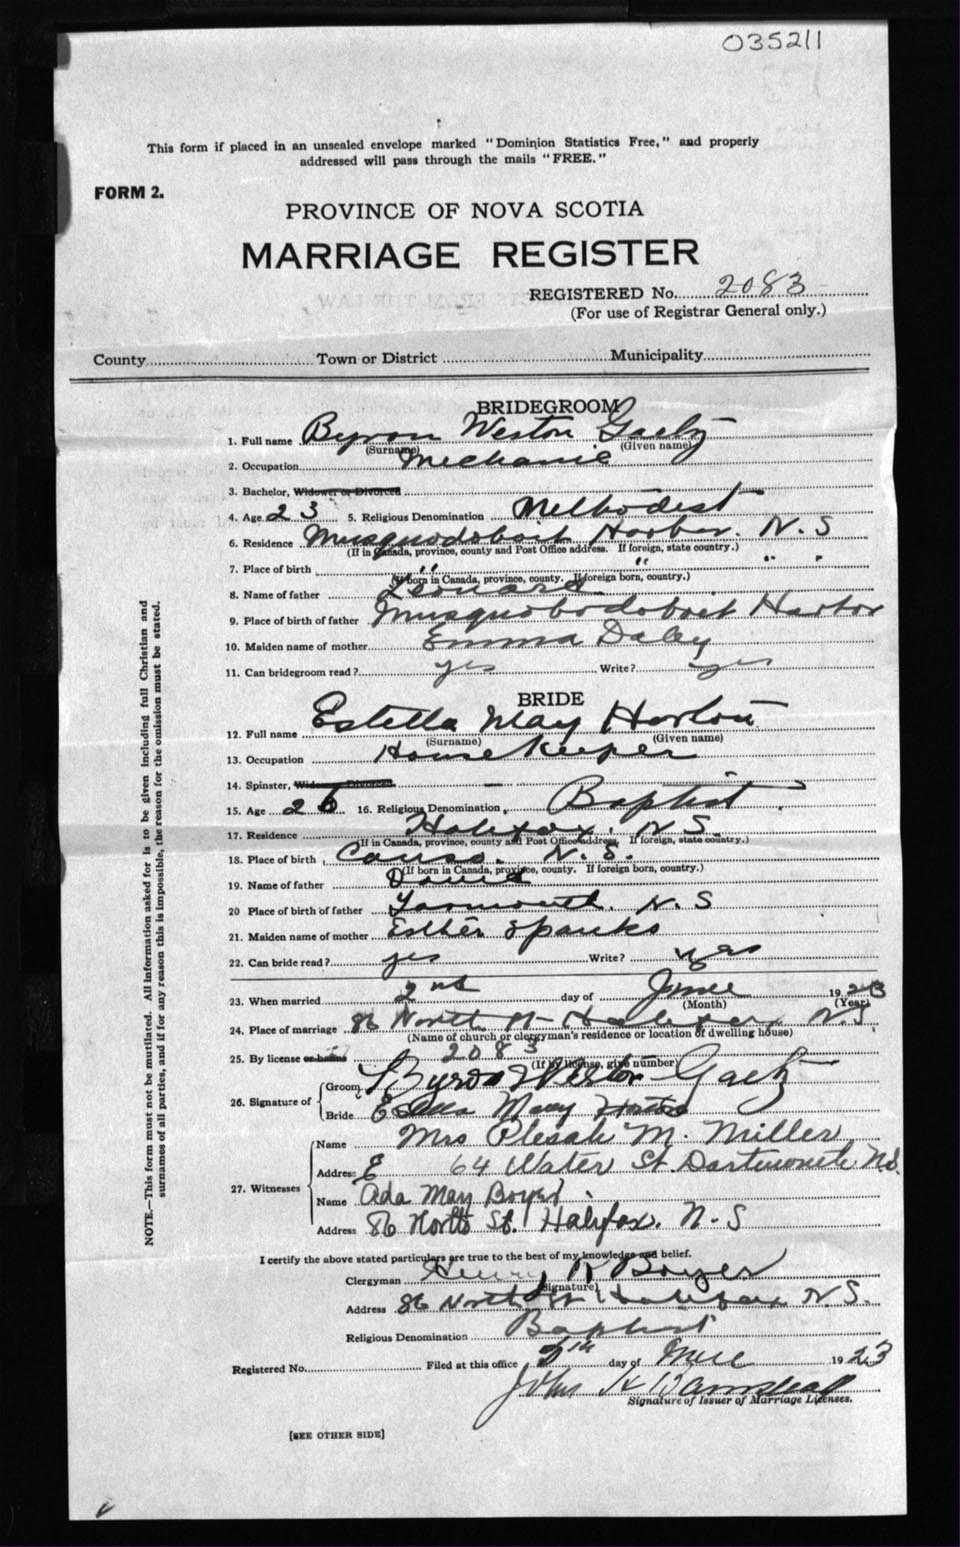 035211
This form if placed in an unsealed envelope marked "Dominion Statistics Free," and properly
addressed will pass through the mails "FREE."
FORM 2.
PROVINCE OF NOVA SCOTIA
MARRIAGE REGISTER
REGISTERED No. 2083
(For use of Registrar General only.)
County Town or District Municipality
BRIDEGROOM
1. Full name Byron Weston Gaetz
(Surname) (Given name)
2. Occupation Mechanic
3. Bachelor, Widower or Divorced
4. Age 23 5. Religious Denomination Methodist
6. Residence Musquodoboit Harbor. N. S
(If in Canada, province, county and Post Office address. If foreign, state country.)
7. Place of birth " " " "
(If born in Canada, province, county. If foreign born, country.)
8. Name of father Leonard
9. Place of birth of father Musquobodoboit Harbor
10. Maiden name of mother Emma Daley
11. Can bridegroom read? yes Write? yes
BRIDE
12. Full name Estella May Horton
(Surname) (Given name)
13. Occupation House Keeper
14. Spinster, Widow or Divorced
15. Age 26 16. Religious Denomination Baptist
17. Residence Halifax. N.S.
(If in Canada, province, county and Post Office address. If foreign, state country.)
18. Place of birth Canso. N. S.
(If born in Canada, province, county. If foreign born, country.)
19. Name of father David
20 Place of birth of father Yarmouth. N. S
21. Maiden name of mother Esther Spanks
22. Can bride read? yes Write? yes
23. When married 2nd day of June 1923
(Month) (Year)
24. Place of marriage 86 North St Halifax, N.S.
(Name of church or clergyman's residence or location of dwelling house)
25. By license or banns 2083
(If by license, give number)
26. Signature of Groom Byron Weston Gaetz
Bride Estella May Horton
27. Witnesses Name Mrs M. Miller
Address 64 Water St Dartmouth N.S.
Name Ada May Boyer
Address 86 North St. Halifax. N-S
I certify the above stated particulars are true to the best of my knowledge and belief.
Clergyman Henry R Boyer
(Signature)
Address 86 North St Halifax, N.S.
Religious Denomination Baptist
Registered No. Filed at this office day of June 1923
John H
Signature of Issuer of Marriage Licenses.
[SEE OTHER SIDE]
NOTE.—This form must not be mutilated. All information asked for is to be given including full Christian and
surnames of all parties, and if for any reason this is impossible, the reason for the omission must be stated.